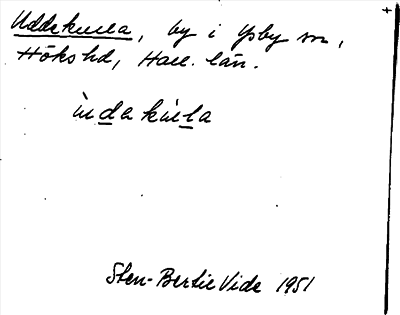 Uddekulla, by i Ysby sn,
Höks hd, Hall. län.
ùdakúlla
Sten-Bertil Vide 1951